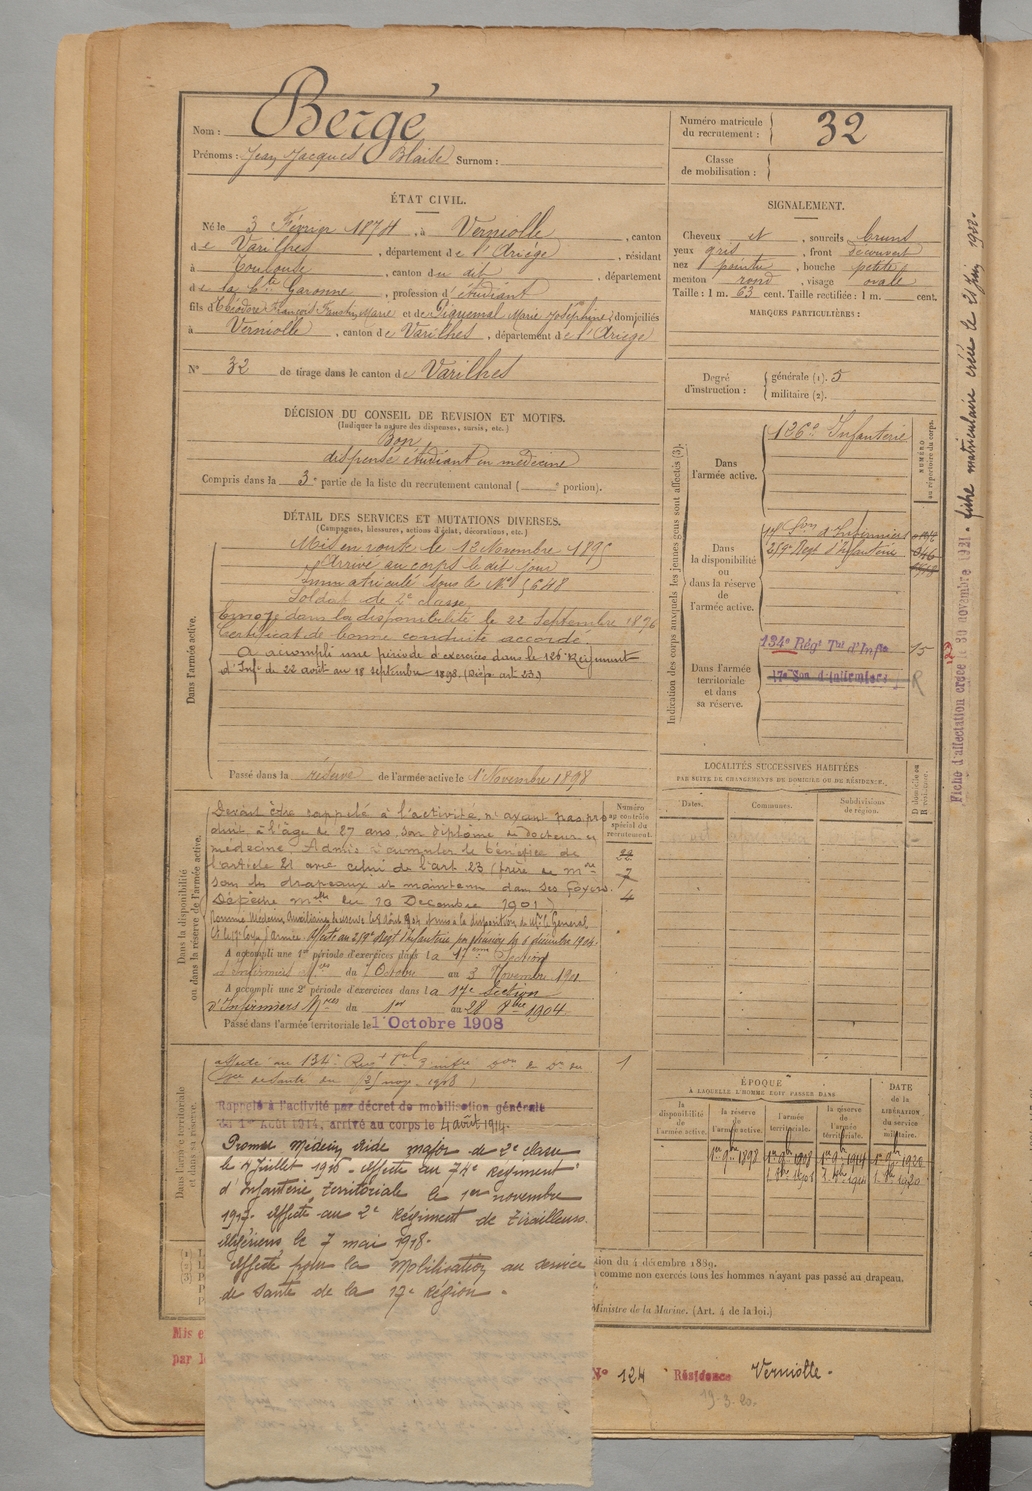 Nom : Bergé
Prénoms : Jean Jacques Blaise Surnom :
Numéro matricule du recrutement : 32
Classe de mobilisation :
ÉTAT CIVIL.
Né le 3 Février 1874, à Verniolle, canton
de Varilhes, département de l'Ariège, résidant
à Toulouse, canton du dit, département
de la Hte Garonne, profession d'étudiant
fils d'Théodore François Faustin Marie et de Piquemal Marie Joséphine, domiciliés
à Verniolle, canton de Varilhes, département de l'Ariège
N° 32 de tirage dans le canton de Varilhes
SIGNALEMENT.
Cheveux et, sourcils bruns
yeux gris, front découvert
nez pointu, bouche petite
menton rond, visage ovale
Taille : 1 m. 63 cent. Taille rectifiée : 1 m. cent.
MARQUES PARTICULIÈRES :
Degré d'instruction : générale (1). 5
militaire (2).
DÉCISION DU CONSEIL DE REVISION ET MOTIFS.
(Indiquer la nature des dispenses, sursis, etc.)
Bon
dispensé étudiant en médecine
Compris dans la 3e partie de la liste du recrutement cantonal ( portion).
DÉTAIL DES SERVICES ET MUTATIONS DIVERSES.
(Campagnes, blessures, actions d'éclat, décorations, etc.)
Dans l'armée active.
Mis en route le 13 Novembre 1895
Arrivé au corps le dit jour
Immatriculé sous le N° 5648
Soldat de 2e classe
Envoyé dans la disponibilité le 22 Septembre 1896
Certificat de bonne conduite accordé
A accompli une période d'exercices dans le 126e Régiment
d'Inf. du 22 août au 18 septembre 1898. (Disp. art 23)
Passé dans la réserve de l'armée active le 1er Novembre 1898
Indication des corps auxquels les jeunes gens sont affectés (3).
NUMÉRO au répertoire du corps.
Dans l'armée active.
126e Infanterie
Dans la disponibilité ou dans la réserve de l'armée active.
17e Son d'Infirmiers
259e Regt d'Infanterie
Dans l'armée territoriale et dans sa réserve.
134e Régt Tal d'Infie 15
17e Son d'Infirmiers R
LOCALITÉS SUCCESSIVES HABITÉES
PAR SUITE DE CHANGEMENTS DE DOMICILE OU DE RÉSIDENCE.
Dates. Communes. Subdivisions de région. D domicile ou R résidence.
Dans la disponibilité ou dans la réserve de l'armée active.
Numéro au contrôle spécial du recrutement.
22
7
4
Devant être rappelé à l'activité, n'ayant pas pro
duit à l'âge de 27 ans son diplôme de docteur en
médecine. Admis à cumuler le bénéfice de
l'article 21 avec celui de l'art. 23 (frère de
sous les drapeaux et maintenu dans ses foyers.
Dépêche mlle du 10 Décembre 1901)
Nommé Médecin Auxiliaire de réserve et mis à la disposition de Mr le Général
Ct le 17e Corps d'Armée. Affecté au 259e Regt d'Infanterie par 6 décembre 1904.
A accompli une 1re période d'exercices dans la 17ème Section
d'Infirmiers Mres du 7 Octobre au 3 Novembre 1901
A accompli une 2e période d'exercices dans la 17e Section
d'Infirmiers Mres du 1er au 28 8bre 1904
Passé dans l'armée territoriale le 1er Octobre 1908
Dans l'armée territoriale et dans sa réserve.
affecté au 134e Regt tal d'infie
1
Rappelé à l'activité par décret de mobilisation générale
du 1er Août 1914, arrivé au corps le 4 août 1914.
Promu Médecin Aide major de 2e classe
le 4 Juillet 1916. Affecté au 74e Régiment
d'Infanterie Territoriale le 1er novembre
1917. Affecté au 2e Régiment de Tirailleurs
Algériens le 7 mai 1918.
Affecté pour la Mobilisation au service
de Santé de la 17e Région.
ÉPOQUE
À LAQUELLE L'HOMME DOIT PASSER DANS
la disponibilité de l'armée active. la réserve de l'armée active. l'armée territoriale. la réserve de l'armée territoriale.
DATE de la LIBÉRATION du service militaire.
1er 9bre 1898
ition du 4 décembre 1889.
comme non exercés tous les hommes n'ayant pas passé au drapeau.
Ministre de la Marine. (Art. 4 de la loi.)
Mis e
par l
N° 124 Résidence Verniolle.
19.3.20.
Fiche d'affectation créée le 30 novembre 1921. fiche matriculaire créée le 21 Juin 1922.